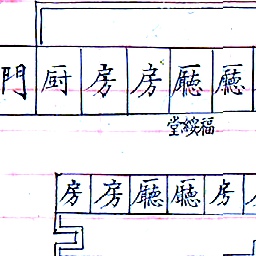 門厨房房廳廳
福綏堂
房房廳廳房